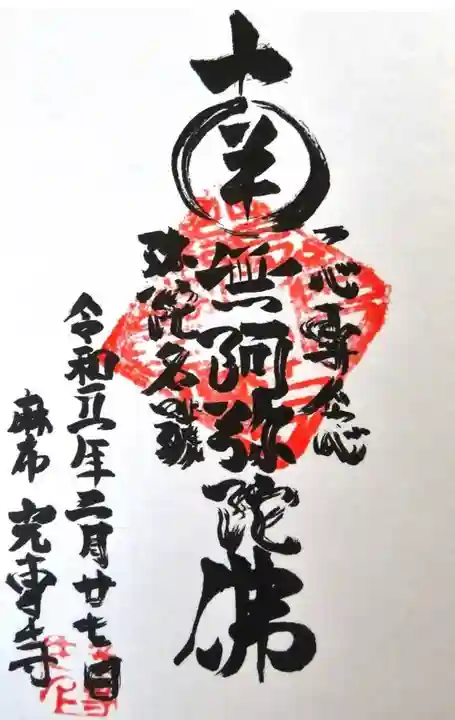 一心専念
南無阿弥陀佛
弥陀名號
令和五年二月廿七日
麻布 光專寺